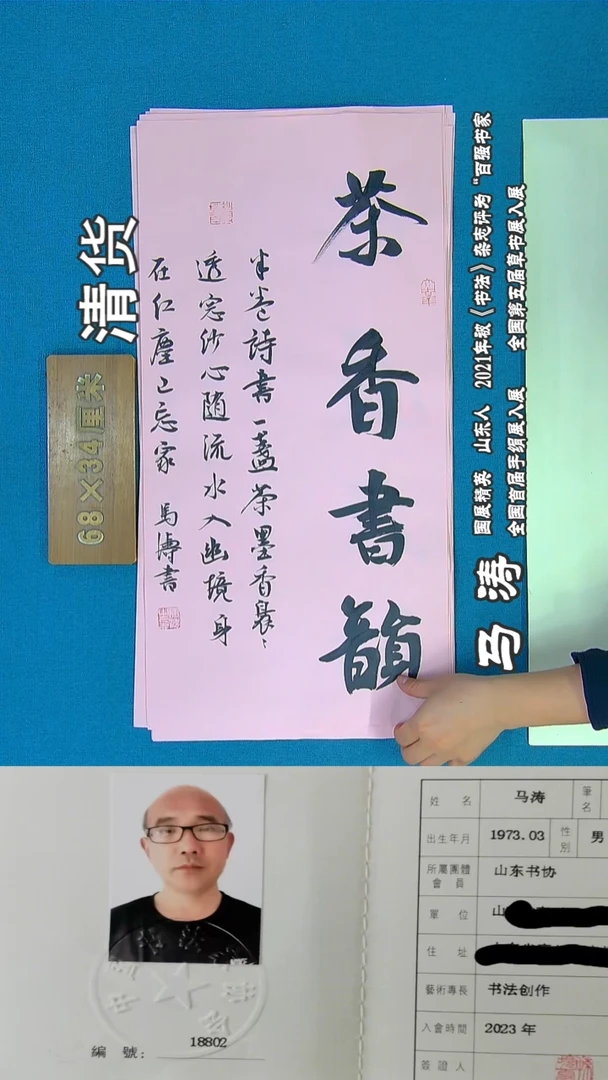 茶香書韻
半卷詩書一盞茶墨香裊裊
透窓紗心随流水入幽境身
在红塵已忘家 馬博書
清货
68×34厘米
马涛
国展精英 山东人 2021年被《书法》杂志评为“百强书家
全国首届手绢展入展 全国第五届草书展入展
姓名 马涛 筆名
出生年月 1973.03 性别 男
所屬團體會員 山东书协
單位 山
住址
藝術專長 书法创作
入會時間 2023 年
簽證人
編號： 18802